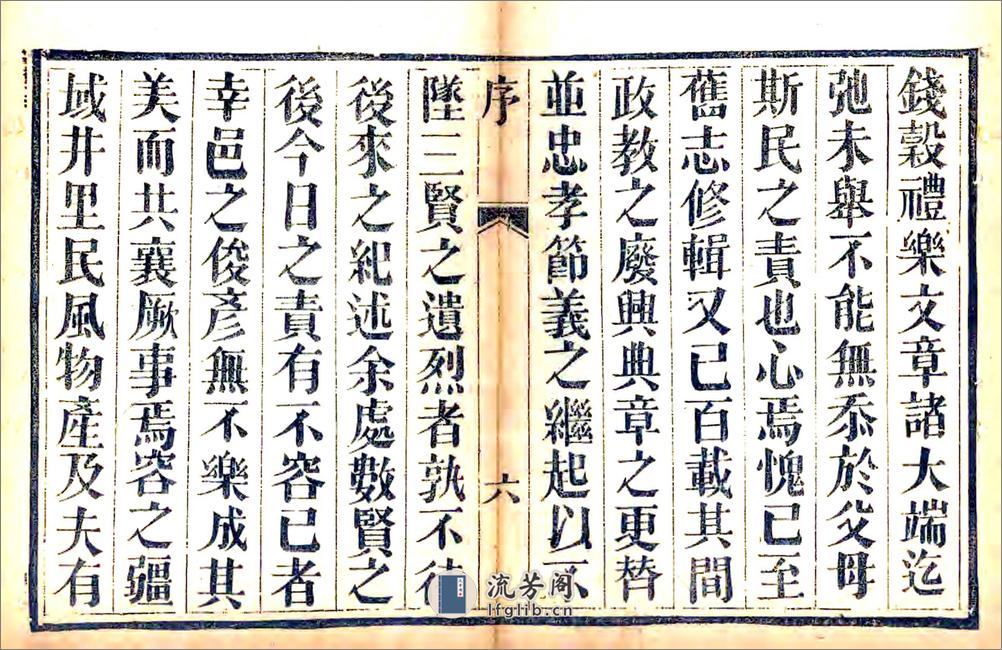 錢穀禮樂文章諸大端迄
弛未舉不能無忝於父母
斯民之責也心焉愧已至
舊志修輯又已百載其間
政教之廢興典章之更替
並忠孝節義之繼起以不
序
六
墜三賢之遺烈者孰不待
後來之紀述余處數賢之
後今日之責有不容已者
幸邑之俊彥無不樂成其
美而共襄厥事焉容之疆
域井里民風物產及夫有
流芳阁
lfglib.cn